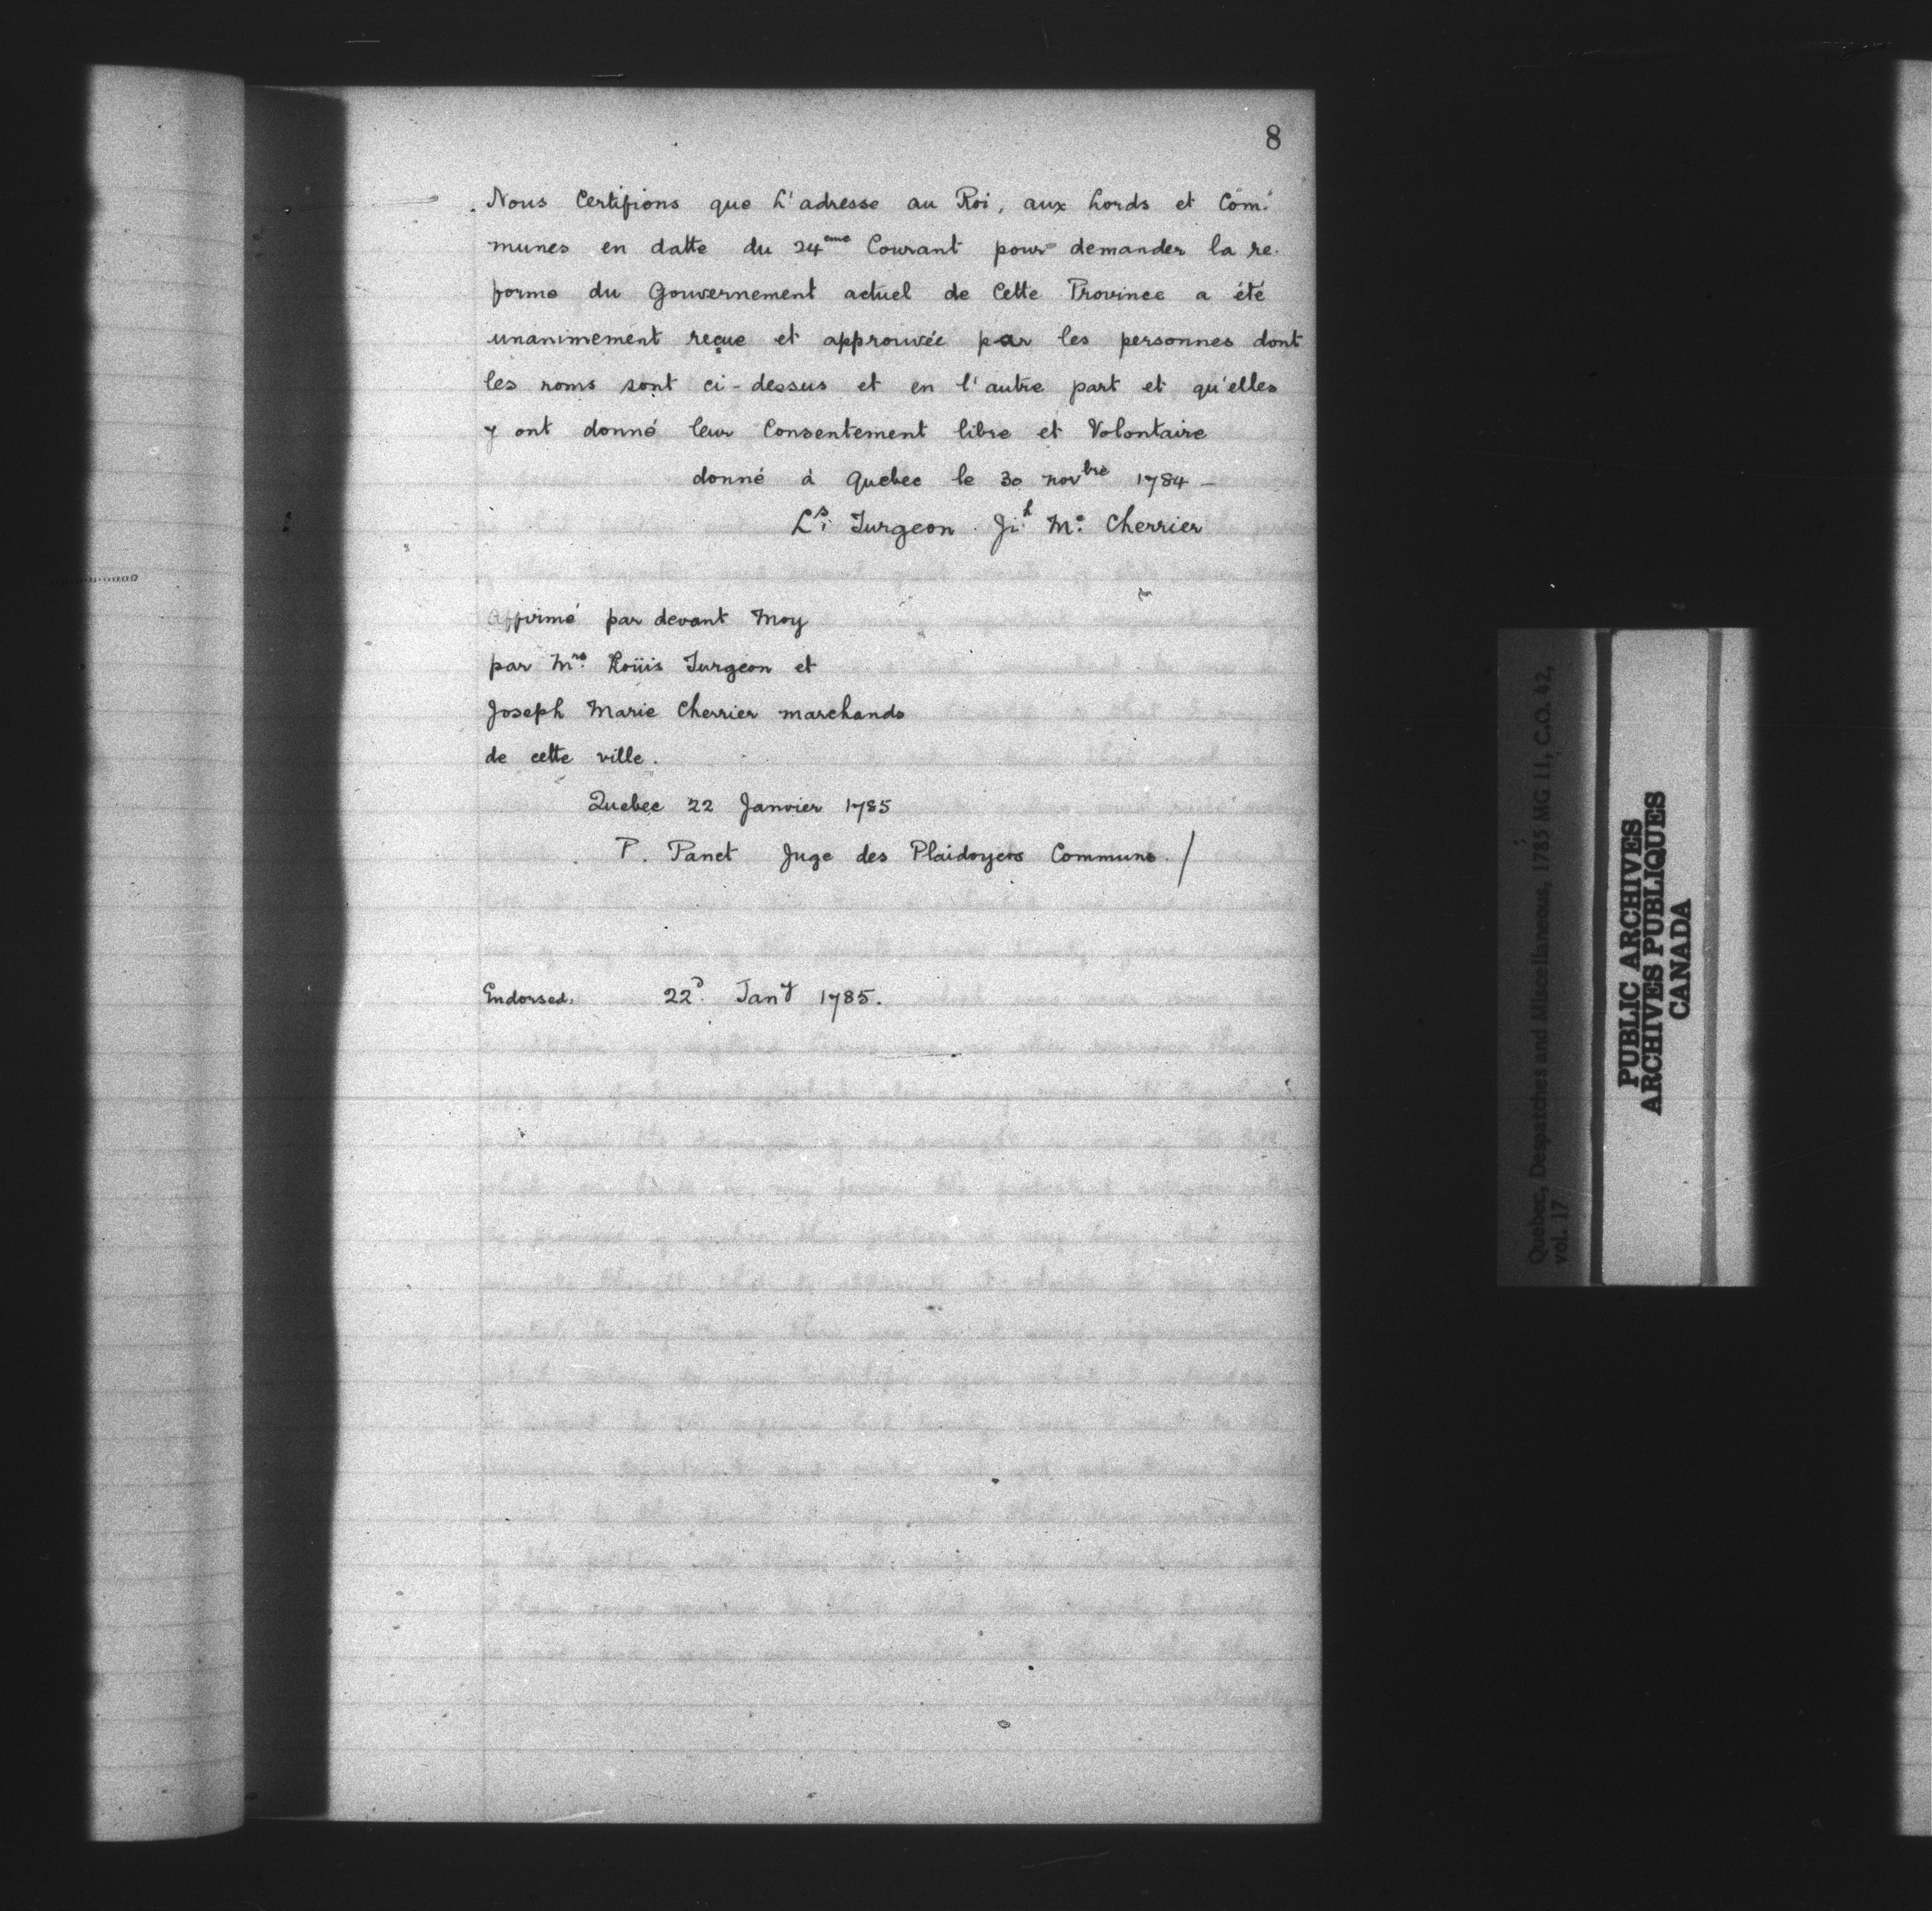 8
Nous Certifions que L'adresse au Roi, aux Lords et Com-
munes en datte du 24eme Courant pour demander la re-
forme du Gouvernement actuel de Cette Province a été
unanimement reçue et approuvée par les personnes dont
les noms sont ci-dessus et en l'autre part et qu'elles
y ont donné leur Consentement libre et Volontaire
donné à Quebec le 30 novbre 1784 —
Ls. Turgeon. Jh. Me. Cherrier
Affirmé par devant Moy
par Mrs. Loüis Turgeon et
Joseph Marie Cherrier marchands
de cette ville.
Quebec 22 Janvier 1785
P. Panet Juge des Plaidoyers Communs. /
Endorsed: 22d. Jany 1785.
Quebec, Despatches and Miscellaneous, 1785 MG 11, C.O. 42,
vol. 17
PUBLIC ARCHIVES
ARCHIVES PUBLIQUES
CANADA